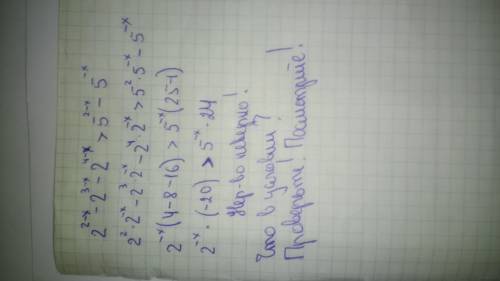 2^{2-x} - 2^{3-x} - 2^{4-x} > 5^{2-x} - 5^{-x}
2^2 · 2^{-x} - 2^3 · 2^{-x} - 2^4 · 2^{-x} > 5^2 · 5^{-x} - 5^{-x}
2^{-x}(4-8-16) > 5^{-x}(25-1)
2^{-x} · (-20) > 5^{-x} · 24
Нер-во неверно!
Что в условии?
Проверьте! Посмотрите!